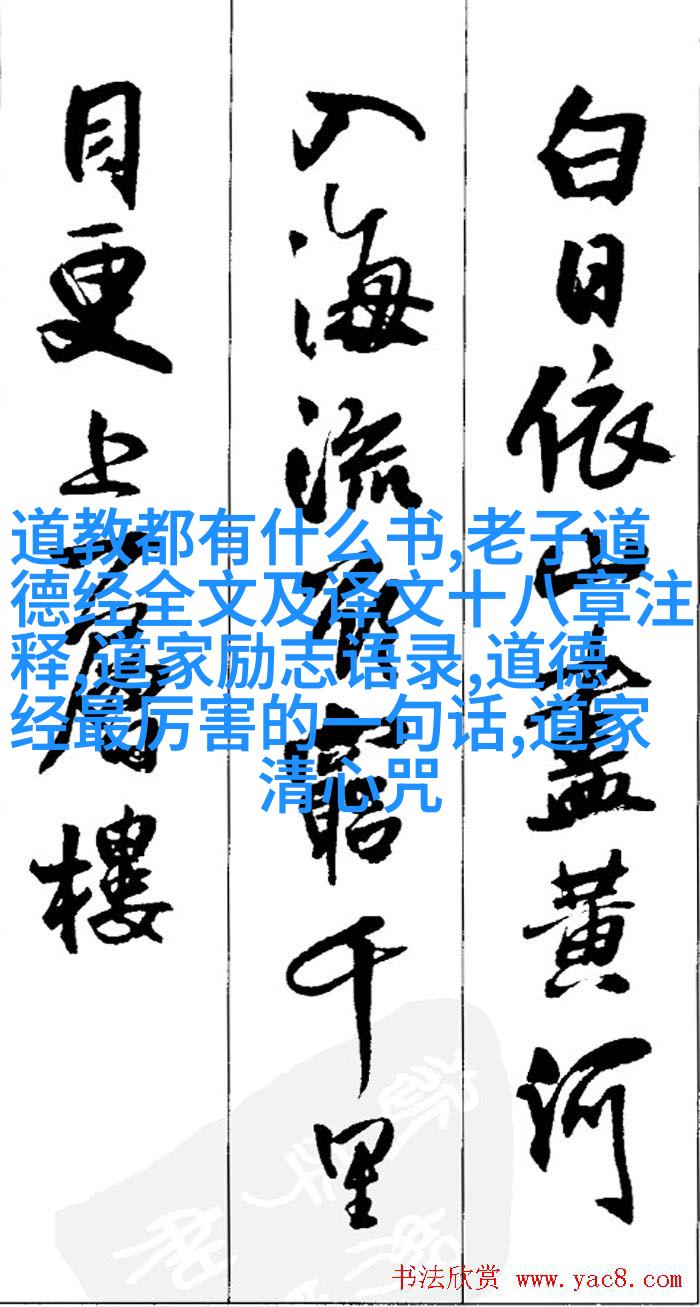 白日依山盡黄河
入海流欲窮千里
目更上一層樓
道教都有什么书,老子道
德经全文及译文十八章注
释,道家励志语录,道德
经最厉害的一句话,道家
清心咒
书法欣赏 www.yac8.com